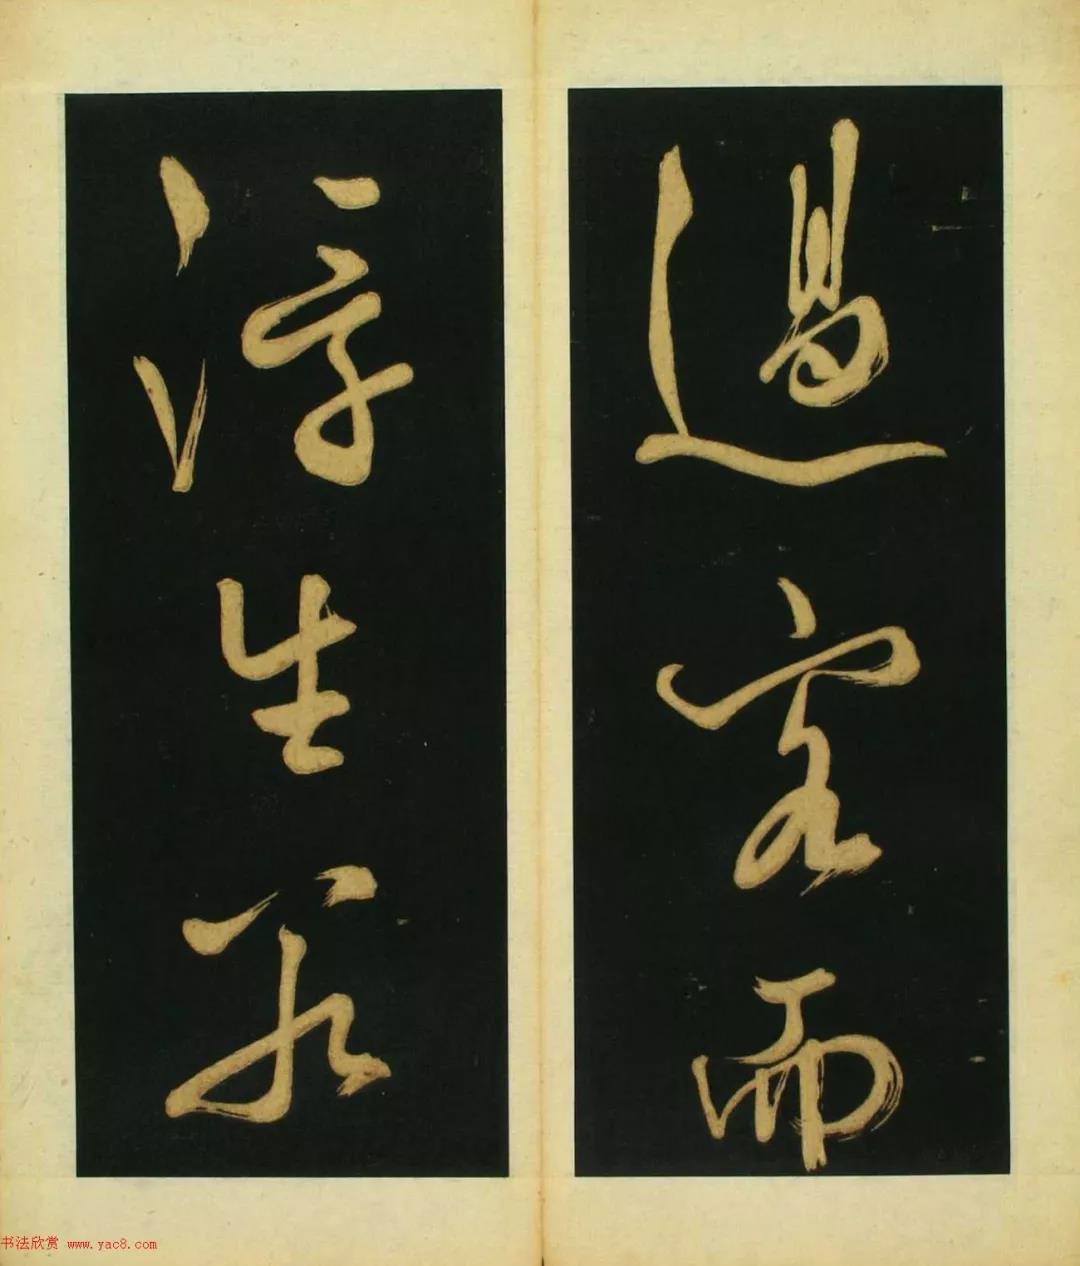 過客而
浮生若
书法欣赏 www.yac8.com